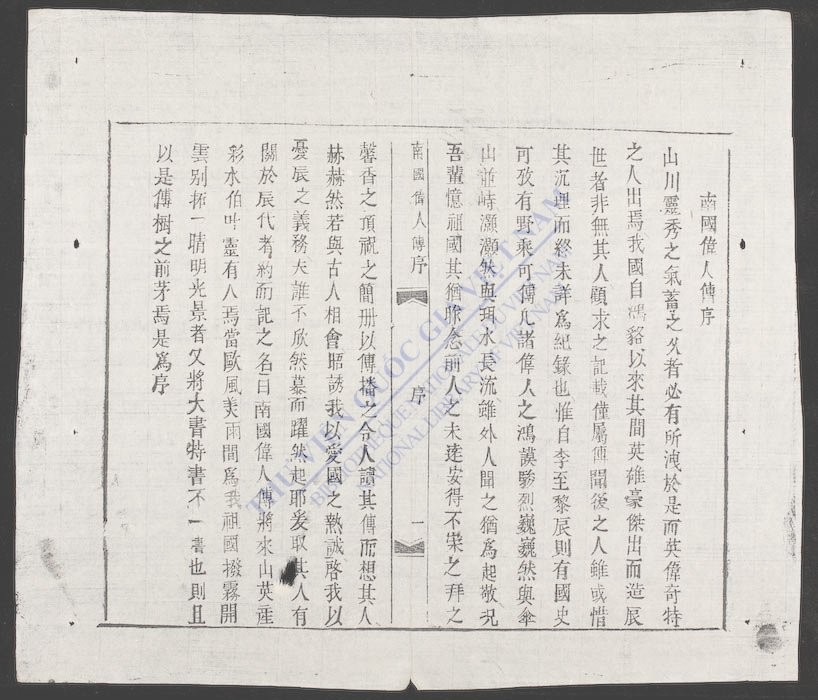 南國偉人傳序
山川靈秀之氣蓄之久者必有所洩於是而英偉奇特
之人出焉我國自鴻貉以來其間英雄豪傑出而造辰
世者非無其人顧求之記載僅屬傳聞後之人雖或惜
其沉理而終未詳爲紀錄也惟自李至黎辰則有國史
可攷有野乘可傳凡諸偉人之鴻謨駿烈巍巍然與傘
山並峙灝灝然與珥水長流雖外人聞之猶爲起敬況
吾輩憶祖國其猶旅念前人之未遠安得不崇之拜之
南國偉人傳序
序
一
馨香之頂祝之簡册以傳播之令人讀其傳而想其人
赫赫然若與古人相會晤誘我以愛國之熱誠啓我以
憂辰之義務夫誰不欣然慕而躍然起耶爰取其人有
關於辰代者約而記之名曰南國偉人傳將來山英產
彩水伯叶靈有人焉當歐風美雨間爲我祖國撥霧開
雲别拓一晴明光景者又將大書特書不一書也則且
以是傳樹之前茅焉是爲序
THƯ VIỆN QUỐC GIA VIỆT NAM
BIBLIOTHEQUE NATIONALE DU VIETNAM
NATIONAL LIBRARY OF VIETNAM